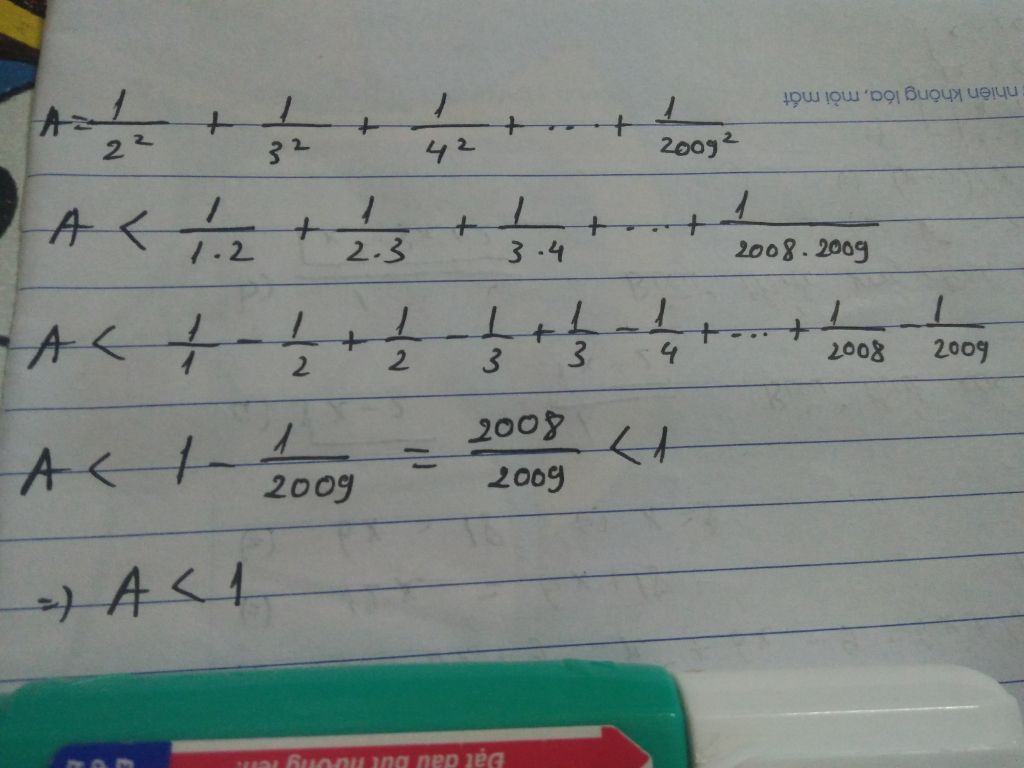 nhiên không lóa, mỏi mắt
A = 1/2² + 1/3² + 1/4² + .... + 1/2009²
A < 1/1.2 + 1/2.3 + 1/3.4 + .... + 1/2008.2009
A < 1/1 - 1/2 + 1/2 - 1/3 + 1/3 - 1/4 + ... + 1/2008 - 1/2009
A < 1 - 1/2009 = 2008/2009 < 1
=) A < 1
Đặt đầu bút hướng lên.